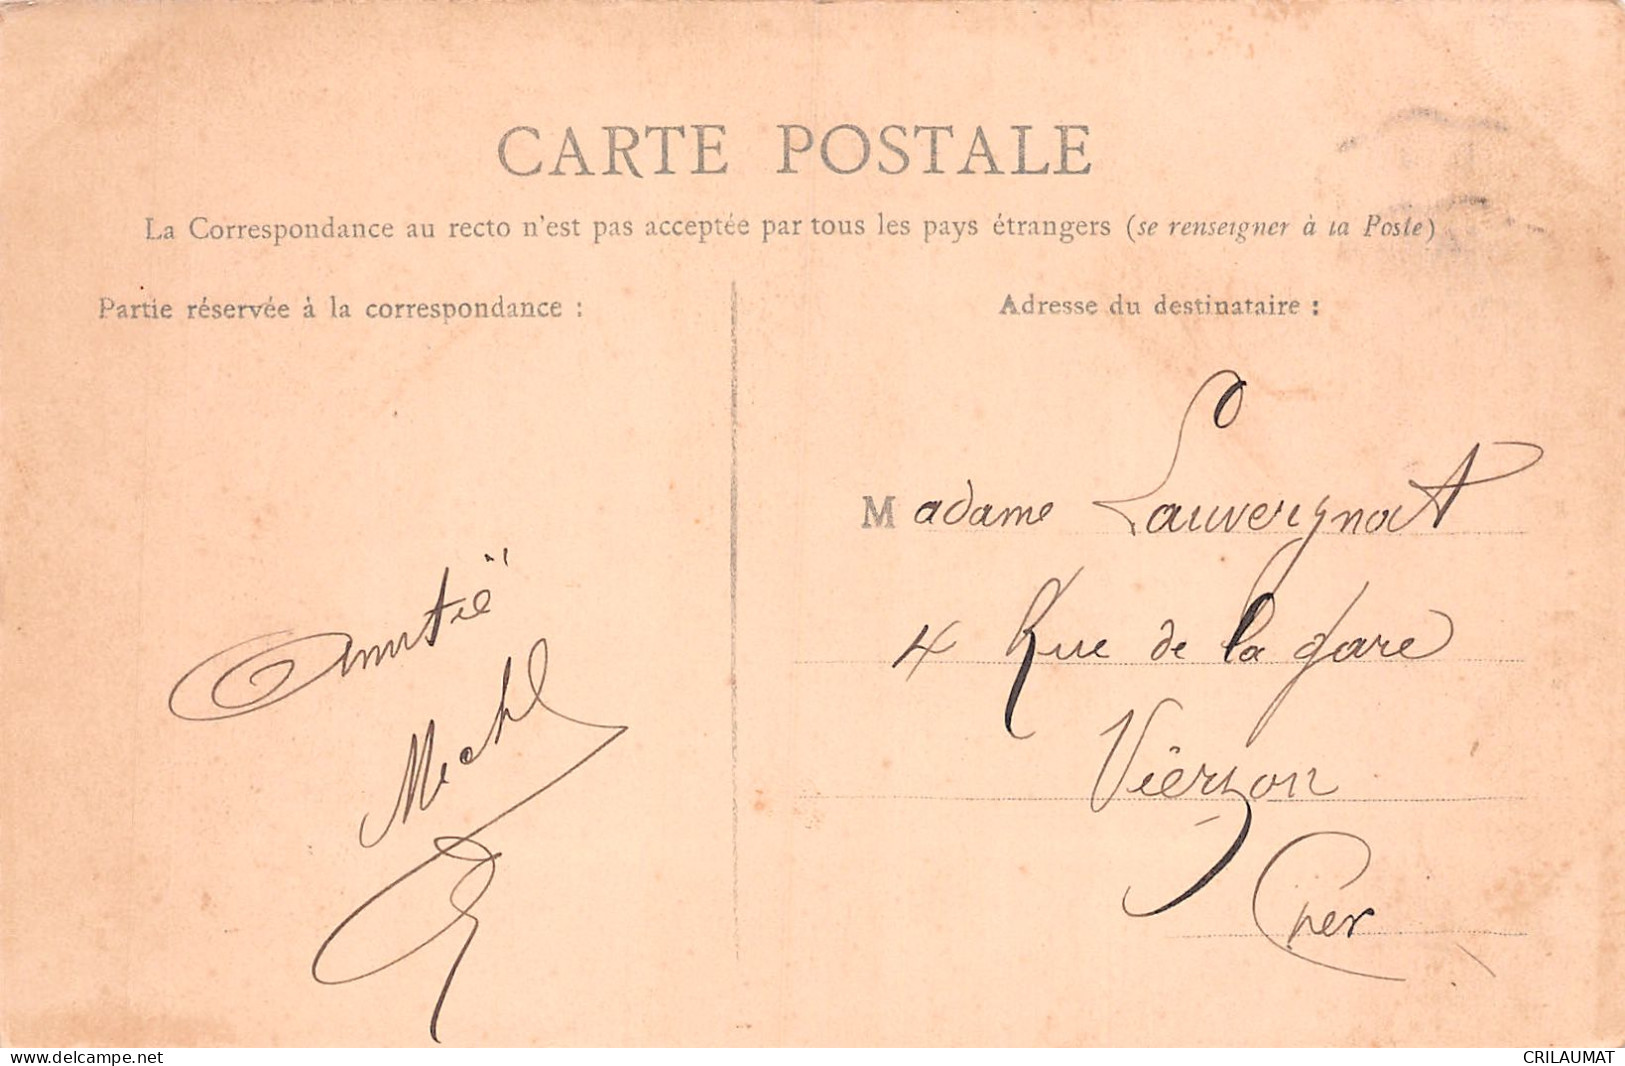 CARTE POSTALE
La Correspondance au recto n'est pas acceptée par tous les pays étrangers (se renseigner à la Poste)
Partie réservée à la correspondance :
Adresse du destinataire :
Madame Lauvergnat
4 Rue de la gare
Vierzon
Cher
Amitié
delcampe.net
CRILAUMAT